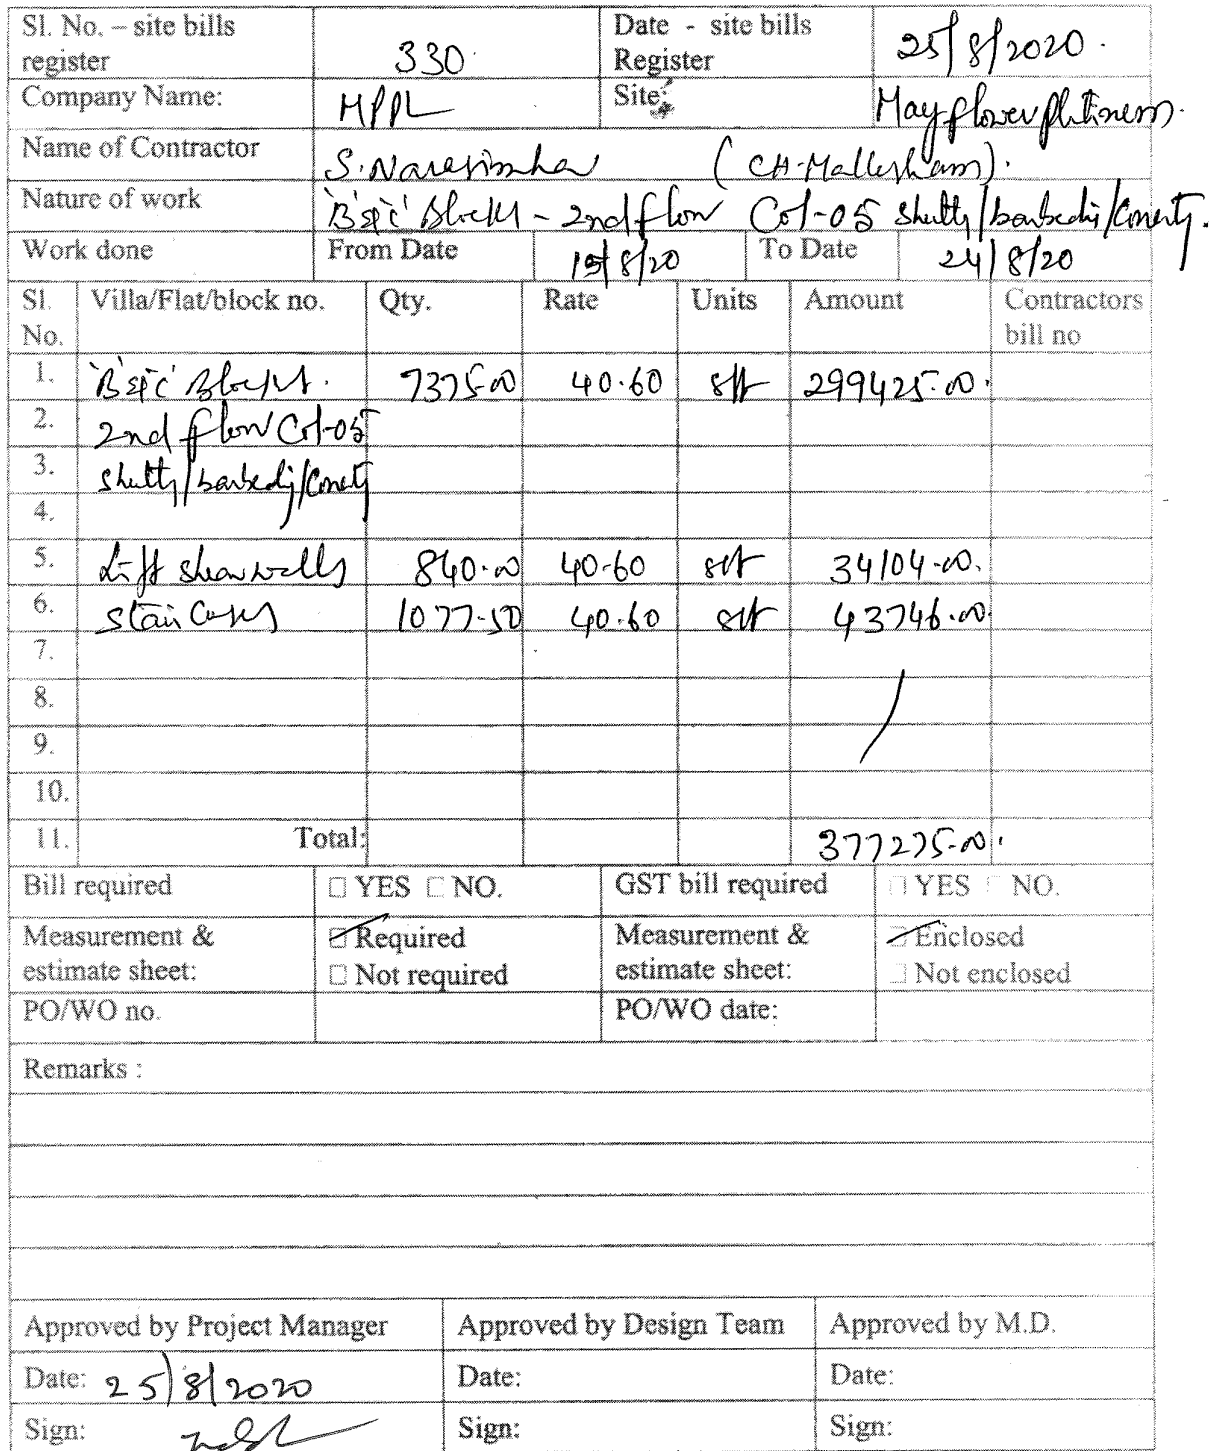 Sl. No. – site bills register 330 Date - site bills Register 25/8/2020.
Company Name: MPPL Site: Mayflower platinem.
Name of Contractor S. Narasimha (CH. Mallesham).
Nature of work 'B' & 'C' Blocks - 2nd floor Col-05
Work done From Date 15/8/20 To Date 24/8/20
Sl. No. Villa/Flat/block no. Qty. Rate Units Amount Contractors bill no
1. 'B' & 'C' Blocks. 7375.00 40.60 sft 299425.00.
2. 2nd floor Col-05
3.
4.
5. Lift shear walls 840.00 40.60 sft 34104.00.
6. Stair Cases 1077.50 40.60 sft 43746.00
7.
8.
9.
10.
11. Total: 377275.00.
Bill required □ YES □ NO. GST bill required □ YES □ NO.
Measurement & estimate sheet: ☑ Required Measurement & estimate sheet: ☑ Enclosed
□ Not required □ Not enclosed
PO/WO no. PO/WO date:
Remarks :
Approved by Project Manager Approved by Design Team Approved by M.D.
Date: 25/8/2020 Date: Date:
Sign: Sign: Sign: